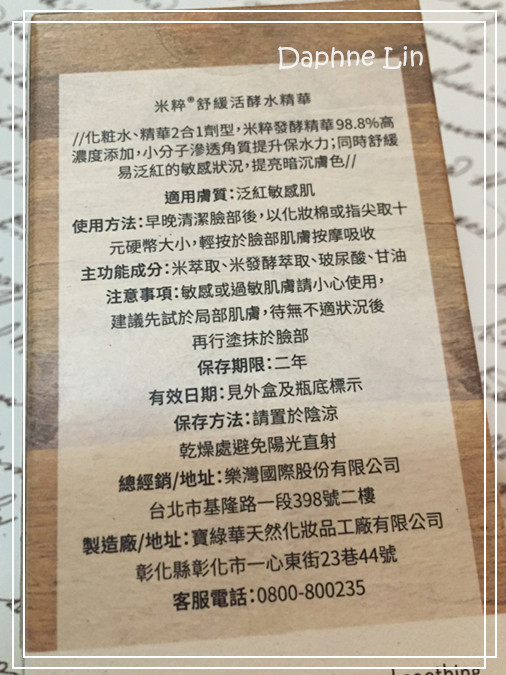 Daphne Lin
米粹®舒緩活酵水精華
//化粧水、精華2合1劑型，米粹發酵精華98.8%高
濃度添加，小分子滲透角質提升保水力；同時舒緩
易泛紅的敏感狀況，提亮暗沉膚色//
適用膚質：泛紅敏感肌
使用方法：早晚清潔臉部後，以化妝棉或指尖取十
元硬幣大小，輕按於臉部肌膚按摩吸收
主功能成分：米萃取、米發酵萃取、玻尿酸、甘油
注意事項：敏感或過敏肌膚請小心使用，
建議先試於局部肌膚，待無不適狀況後
再行塗抹於臉部
保存期限：二年
有效日期：見外盒及瓶底標示
保存方法：請置於陰涼
乾燥處避免陽光直射
總經銷/地址：樂灣國際股份有限公司
台北市基隆路一段398號二樓
製造廠/地址：寶綠華天然化妝品工廠有限公司
彰化縣彰化市一心東街23巷44號
客服電話：0800-800235